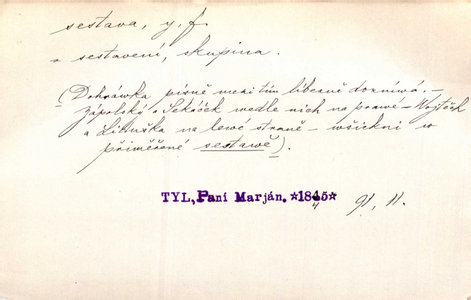 sestava, y, f.
= sestavení, skupina.
(Dohrávka písně mezi tím líbezně doznívá. –
Zápolský a Sekáček vedle nich na pravé – Wojtěch
a Liduška na levé straně – všickni w
přiměřené sestavě).
TYL, Paní Marján. *1845* 91, 11.
4